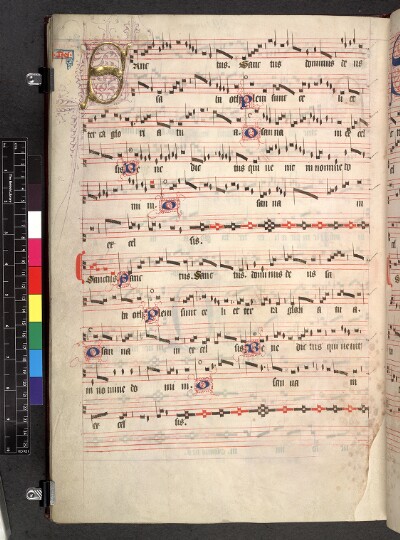 Sanc tus. Sanc tus dominus de us
sa ba oth Pleni sunt ce li et
ter ra glo ri a tu a. Osanna in ex cel
sis Be ne dic tus qui ve nit in nomine do
mi ni. O sanna in
ex cel sis.
Sanctus. Sanc tus. Sanc tus. dominus de us sa
ba oth. Pleni sunt ce li et ter ra gloria tu a.
Osan na in ex cel sis Be ne dictus qui venit
in nomine do mi ni. O sanna in
ex cel sis.